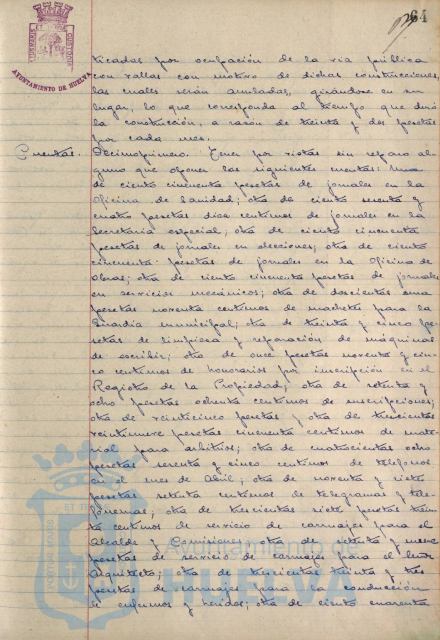 64
AYUNTAMIENTO DE HUELVA
ticadas por ocupación de la via pública
con vallas con motivo de dichas construcciones,
las cuales serán anuladas, girándose en su
lugar, lo que corresponda al tiempo que duró
la construcción, a razón de treinta y dos pesetas
por cada mes.
Cuentas. Decimoprimero. Tener por vistas sin reparo al-
guno que oponer las siguientes cuentas: Una
de ciento cincuenta pesetas de jornales en la
Oficina de Sanidad; otra de ciento setenta y
cuatro pesetas diez centimos de jornales en la
Secretaria especial; otra de ciento cincuenta
pesetas de jornales en elecciones; otra de ciento
cincuenta pesetas de jornales en la Oficina de
Obras; otra de ciento cincuenta pesetas de jornales
en servicios mecánicos; otra de doscientas una
pesetas noventa centimos de machetes para la
Guardia municipal; otra de treinta y cinco pe-
setas de limpieza y reparación de máquinas
de escribir; otra de once pesetas noventa y cin-
co centimos de honorarios por inscripción en el
Registro de la Propiedad; otra de setenta y
ocho pesetas ochenta centimos de inscripciones;
otra de veinticinco pesetas y otra de trescientas
veintinueve pesetas cincuenta centimos de mate-
rial para arbitrios; otra de cuatrocientas ocho
pesetas setenta y cinco centimos de telefonos
en el mes de Abril; otra de noventa y siete
pesetas setenta centimos de telegramas y tele-
fonemas; otra de trescientas siete pesetas trein-
ta centimos de servicio de carruajes para el
Alcalde y Comisiones; otra de setenta y nueve
pesetas de servicio de carruajes para el Señor
Arquitecto; otra de trescientas treinta y tres
pesetas de carruajes para la conducción
de enfermos y heridos; otra de ciento cuarenta
Ayuntamiento de
HUELVA